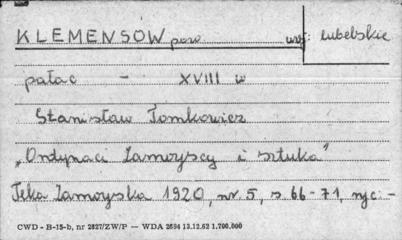 KLEMENSÓW pow. woj: lubelskie
pałac - XVIII w
Stanisław Tomkowicz
„Ordynaci Zamoyscy i sztuka"
Teka Zamoyska 1920, nr. 5, s. 66-71, ryc: -
CWD - B-15-b, nr 2827/ZW/P — WDA 2694 13.12.62 1.700.000